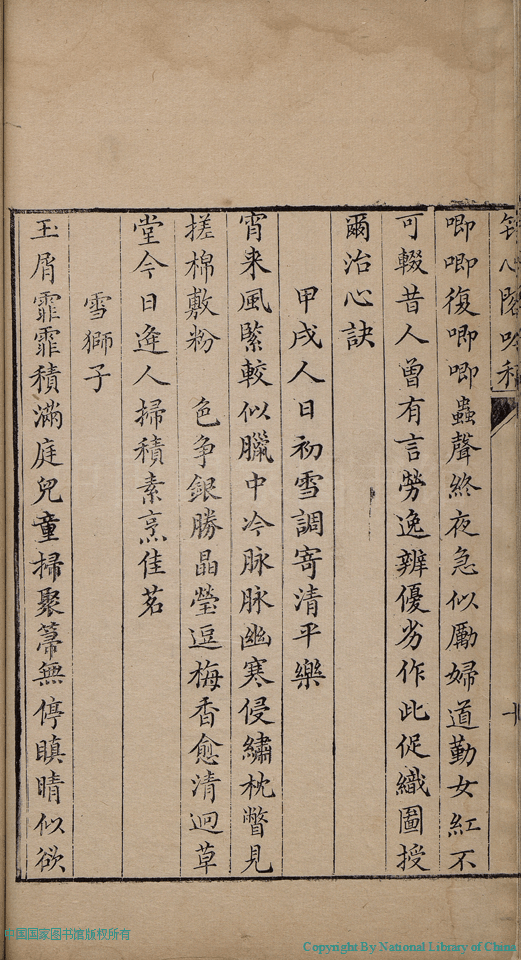 唧唧復唧唧蟲聲終夜急似勵婦道勤女紅不
可輟昔人曾有言勞逸辨優劣作此促織圖授
爾治心訣
甲戌人日初雪調寄清平樂
宵来風緊較似臘中冷脉脉幽寒侵繡枕瞥見
搓棉敷粉　色争銀勝晶瑩逗梅香愈清迥草
堂今日逢人掃積素烹佳茗
雪獅子
玉屑霏霏積滿庭兒童掃聚箒無停瞋晴似欲
中国国家图书馆版权所有
Copyright By National Library of China